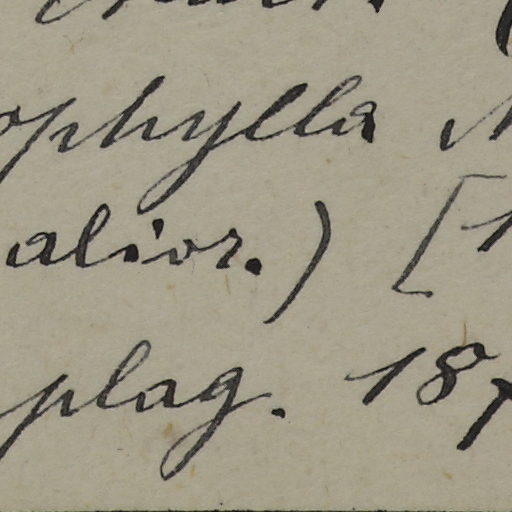 ophylla
alior.) [1
plag. 18